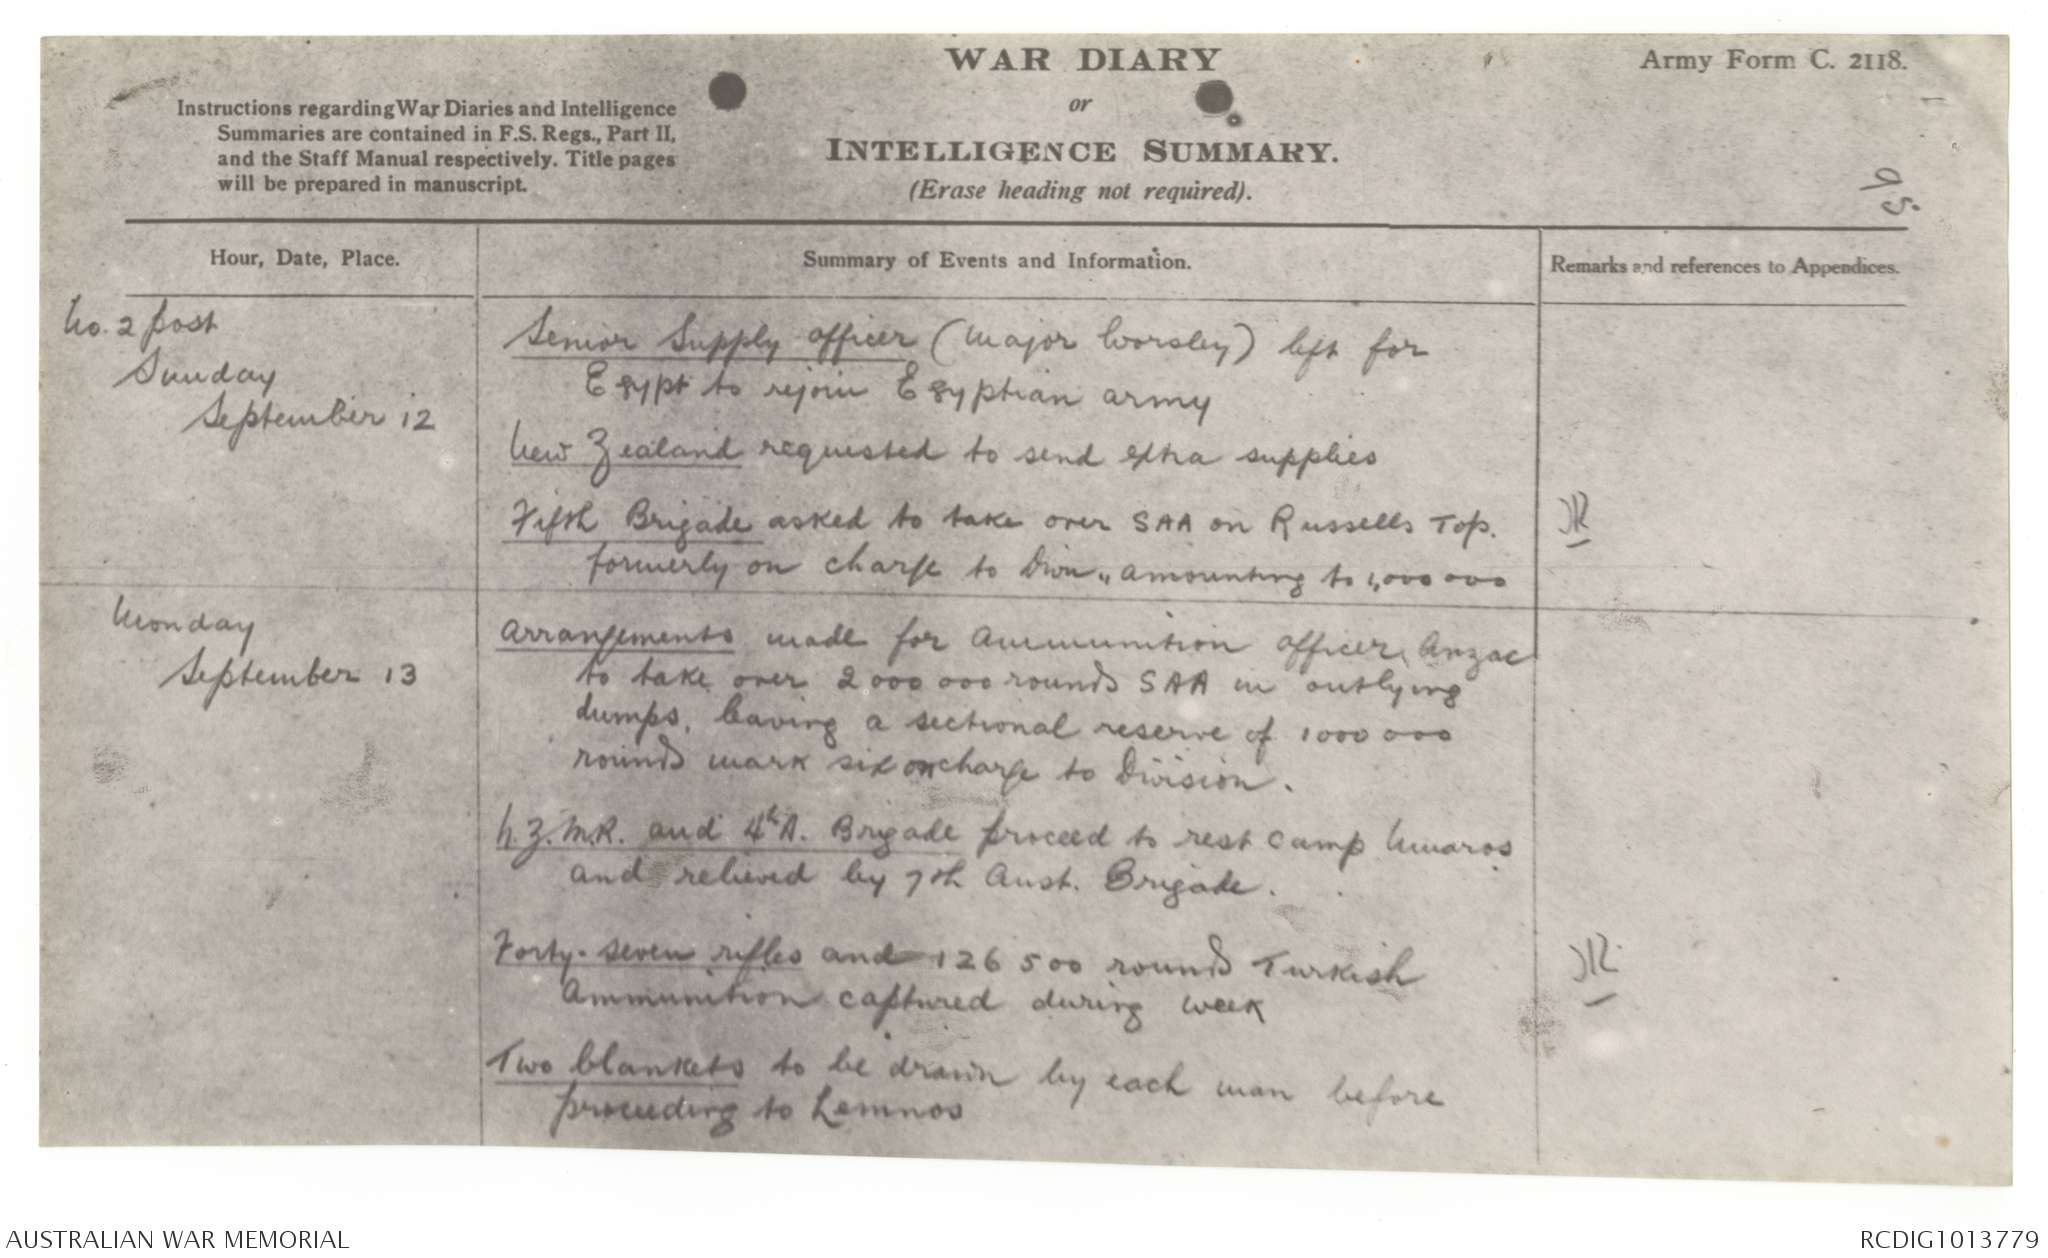 WAR DIARY
or
INTELLIGENCE SUMMARY.
(Erase heading not required).
Army Form C. 2118.
Instructions regarding War Diaries and Intelligence
Summaries are contained in F.S. Regs., Part II,
and the Staff Manual respectively. Title pages
will be prepared in manuscript.
95
Hour, Date, Place.
Summary of Events and Information.
Remarks and references to Appendices.
No. 2 post
Sunday
September 12
Senior Supply officer (Major Worsley) left for
Egypt to rejoin Egyptian army
New Zealand requested to send extra supplies
Fifth Brigade asked to take over SAA on Russells Top.
formerly on charge to Divn, amounting to 1,000000
Monday
September 13
Arrangements made for Ammunition officer, Anzac
to take over 2000000 rounds SAA in outlying
dumps, leaving a sectional reserve of 1000000
rounds mark six on charge to Division.
N.Z.M.R. and 4th A. Brigade proceed to rest camp
and relieved by 7th Aust. Brigade.
Forty-seven rifles and 126500 rounds Turkish
Ammunition captured during week
Two blankets to be drawn by each man before
proceeding to Lemnos
AUSTRALIAN WAR MEMORIAL
RCDIG1013779